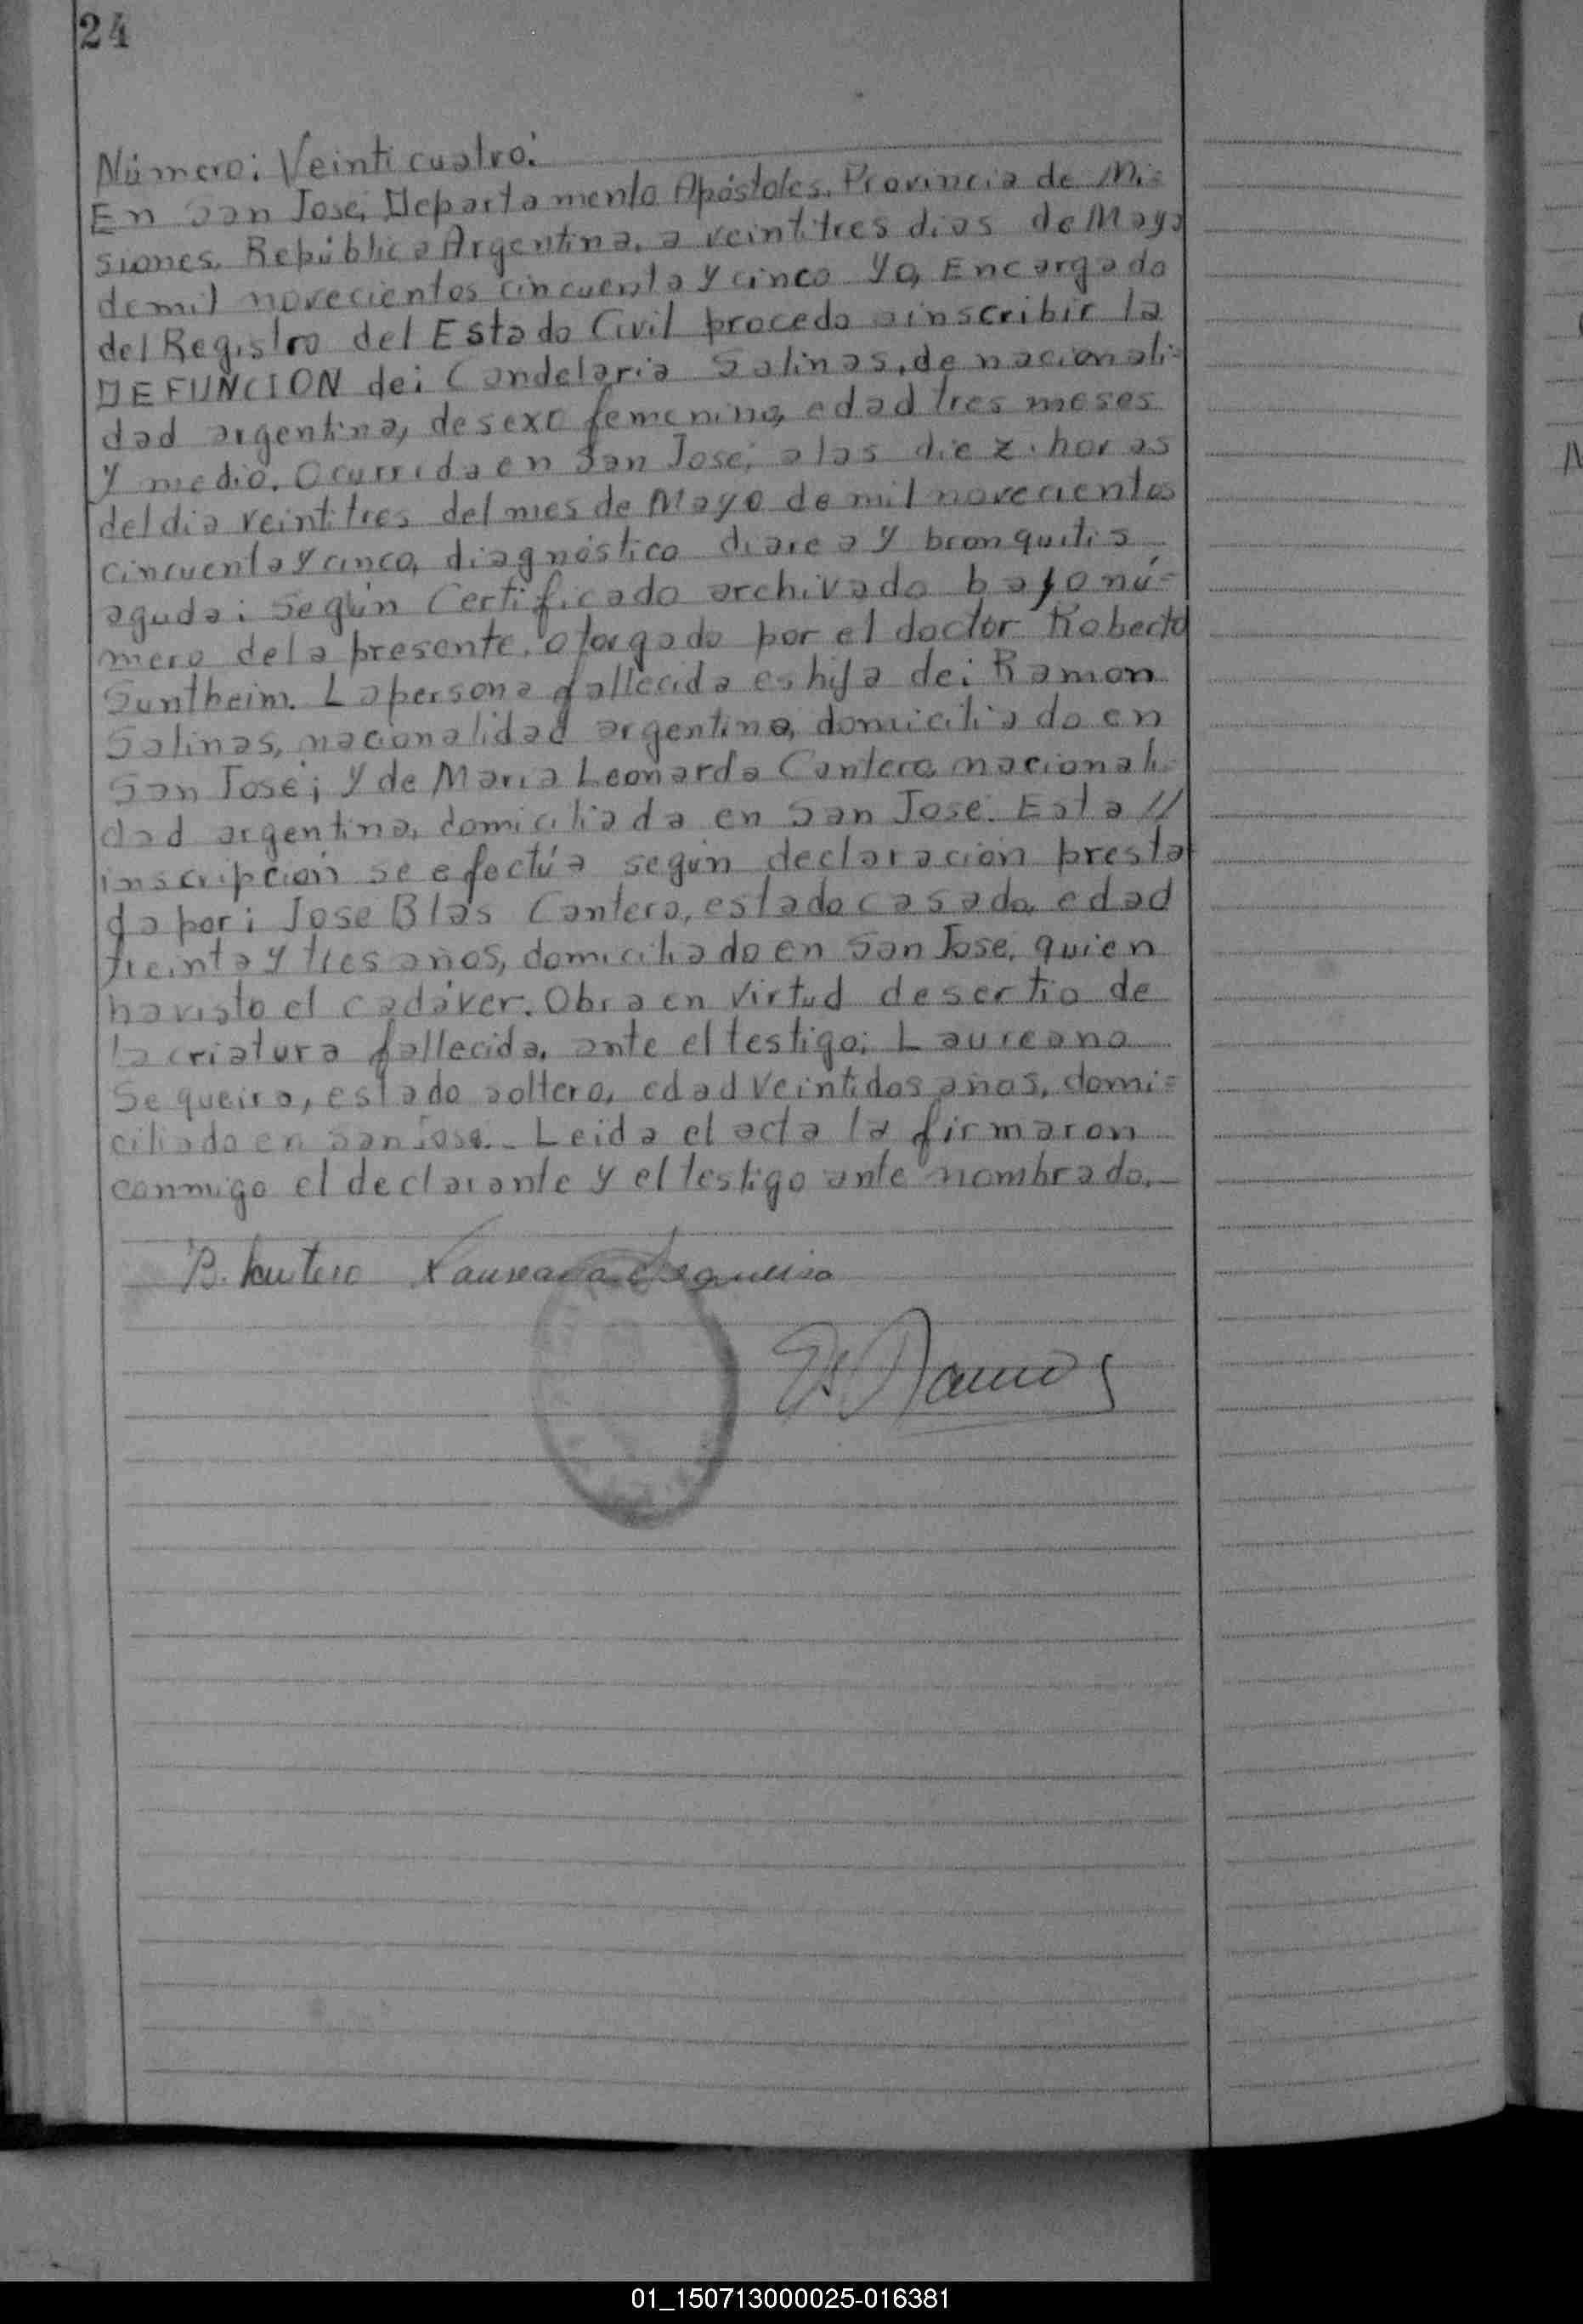 24
Número: Veinticuatro:
En San José, Departamento Apóstoles, Provincia de Mi=
siones, República Argentina, a veintitres dias de Mayo
de mil novecientos cincuenta y cinco Yo, Encargado
del Registro del Estado Civil procedo a inscribir la
DEFUNCION de: Candelaria Salinas, de nacionali=
dad argentina, de sexo femenino, edad tres meses
y medio. Ocurrida en San José, a las diez horas
del dia veintitres del mes de Mayo de mil novecientos
cincuenta y cinco, diagnóstico diarea y bronquitis
aguda: Según Certificado archivado bajo nú=
mero de la presente, otorgado por el doctor Roberto
Suntheim. La persona fallecida es hija de: Ramon
Salinas, nacionalidad argentina, domiciliado en
San José; y de Maria Leonarda Cantero, nacionali=
dad argentina, domiciliada en San José. Esta //
inscripción se efectúa según declaración presta
da por: José Blas Cantero, estado casado, edad
treinta y tres años, domiciliado en San José, quien
ha visto el cadáver. Obra en virtud de ser tio de
la criatura fallecida, ante el testigo: Laureano
Sequeira, estado soltero, edad veintidos años, domi=
ciliado en San José.- Leida el acta la firmaron
conmigo el declarante y el testigo ante nombrado.-
B. Cantero Laureano Sequeira
Ramos
01_150713000025-016381